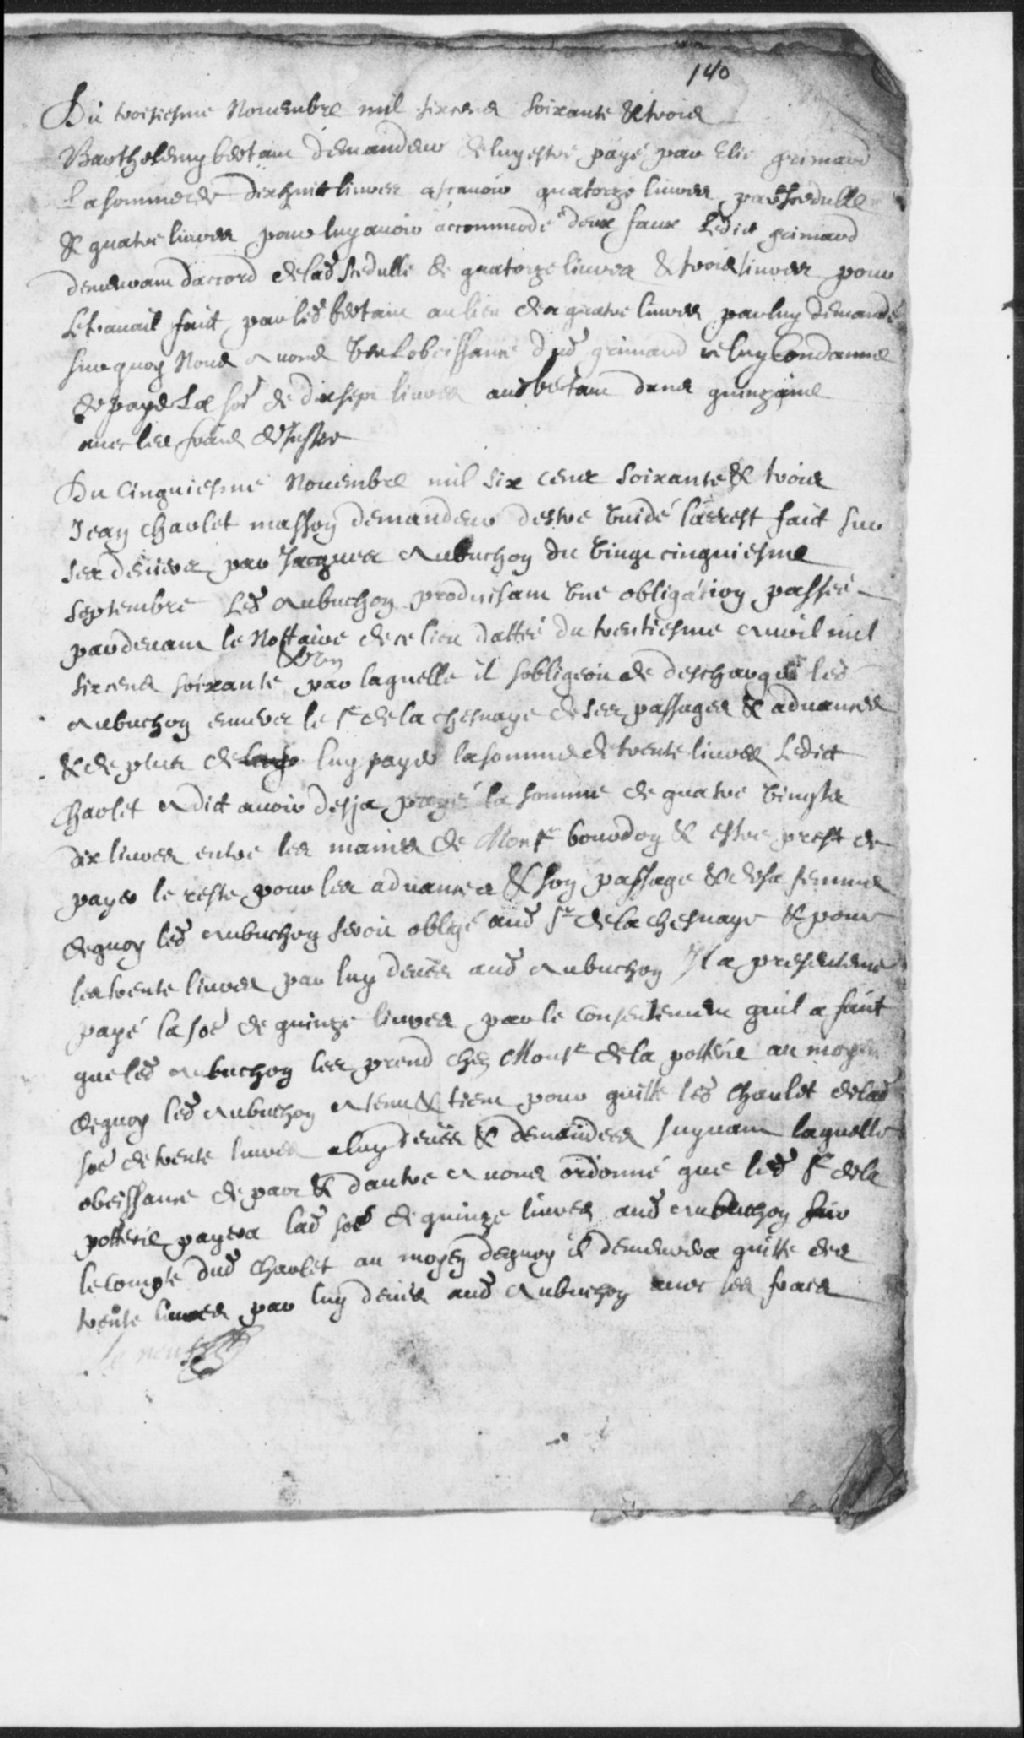 140
Du troisiesme Nouembre mil sixcens soixante & trois
Barthelemy bertam demandeur de luy estre payé par Elie grimard
La somme de dixhuit liures ascauoir quatorze liures par scedulle
& quatre liures pour luy auoir accommodé deux faux Ledict grimard
demeurant daccord de lad scedulle de quatorze liures & trois liures pour
Le trauail faict par led bertam au lieu des quatre liures par luy demandé
sur quoy Nous auons veu Lobeissance dud grimard icluy condamné
de payer La soe de dixsept liures aud bertam dans quinzaine
auec les frais de
Du Cinquiesme Nouembre mil six cens soixante & trois
Jean charlet masson demandeur destre vuidé larrest faict sur
ses deniers par Jacques Aubuchon du vingt cinquiesme
septembre Led Aubuchon produisant vne obligation passée
pardeuant le Nottaire de ce lieu dattée du trentiesme Auril mil
sixcens soixante par laquelle il sobligeoit de descharger led
Aubuchon enuers le sr de la chesnaye de ses passages & aduances
& de plus de luy payer la somme de trente liures Ledict
charlet a dict auoir desja payé la somme de quatre vingts
dix liures entre les mains de Monsr bourdon & estre prest de
payer le reste pour les aduances & son passage & de sa femme
de quoy led Aubuchon seroit obligé aud sr de la chesnaye & pour
les trente liures par luy deues aud Aubuchon Il a presentement
payé la soe de quinze liures par le consentement quil a faict
que led Aubuchon les prend chez Monsr de la potterie au moyen
de quoy led Aubuchon a tenu & tient pour quitte led charlet de lad
soe de trente liures a luy deues & demandees suyuant laquelle
obeissance de part & dautre Auons ordonné que led sr de la
potterie payera lad soe de quinze liures aud Aubuchon sur
le compte dud charlet au moyen de quoy il demeurera quitte des
trente liures par luy deues aud Aubuchon auec les frais